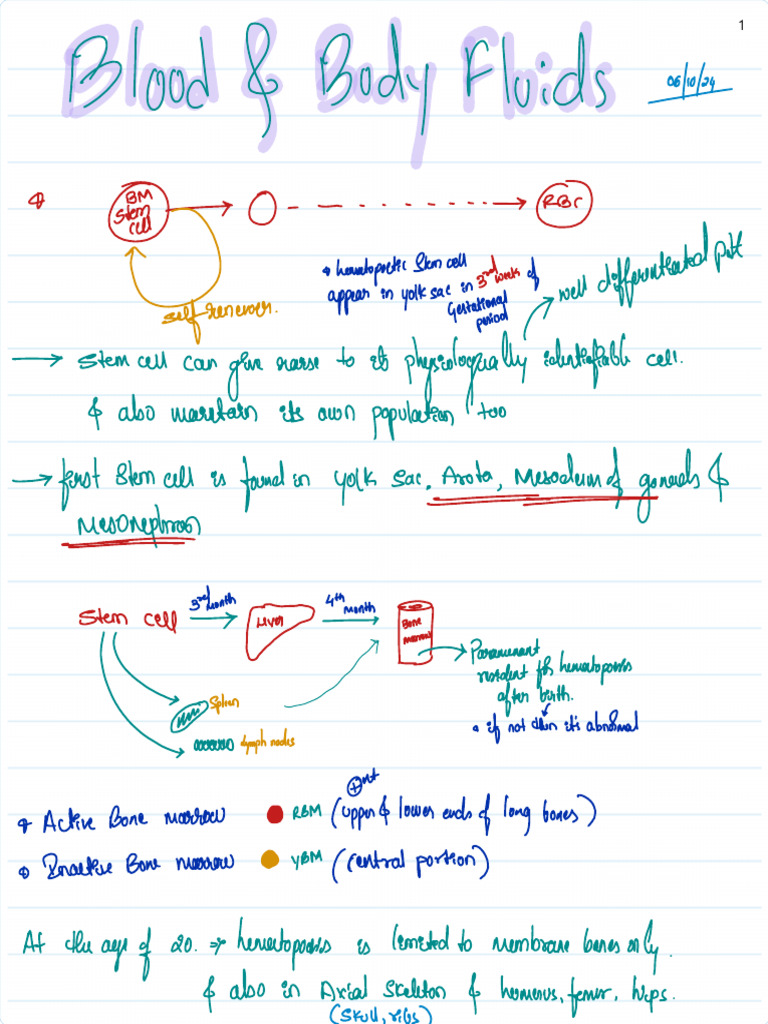 1
Blood & Body Fluids
06/10/24
BM
Stem
cell
RBC
self renewer.
hematopoetic Stem cell
appear in yolk sac in 3rd week of
Gestational
period
well differentiated pdt
Stem cell can give raise to its physiologically identifiable cell.
& also maintain its own population too
first Stem cell is found in yolk sac, Arota, Mesoderm of gonads &
Mesonephros
Stem cell
3rd month
Liver
4th
month
Bone
marrow
Paramenant
resident for hematoposis
after birth.
if not then it's abnormal
Spleen
lymph nodes
Active Bone marrow RBM (upper & lower ends of long bones)
Inactive Bone marrow YBM (central portion)
At the age of 20. → hematoposis is limited to membrane bones only.
& also in Axial Skeleton & homerus, femur, hips.
(Skull, ribs)